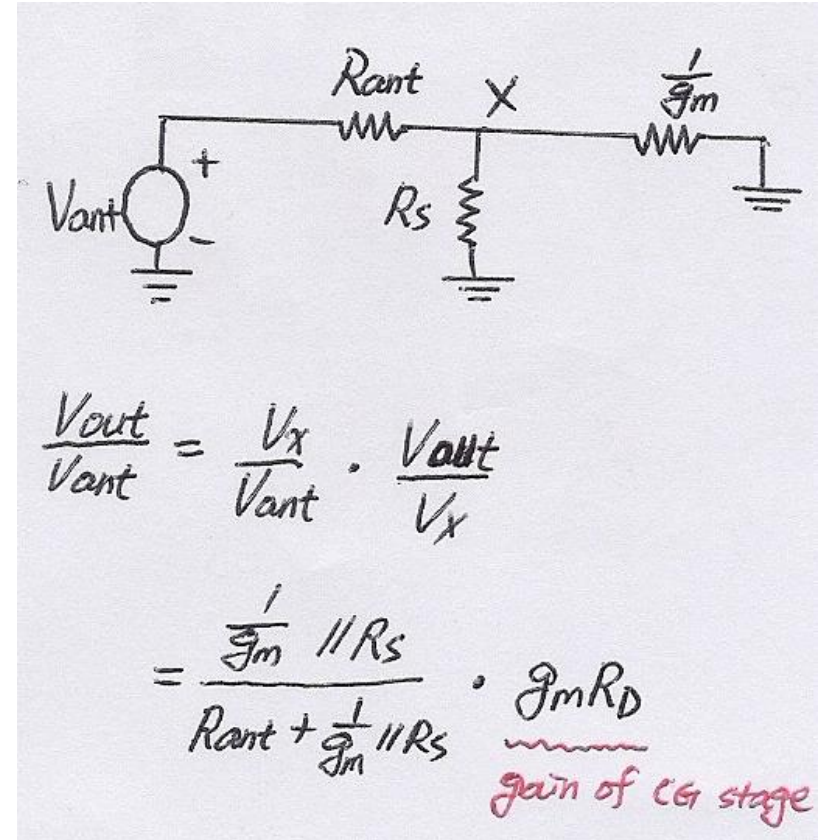 Rant X 1/gm
Vant + - Rs
Vout/Vant = Vx/Vant · Vout/Vx
= (1/gm // Rs)/(Rant + 1/gm // Rs) · gmRD
gain of CG stage